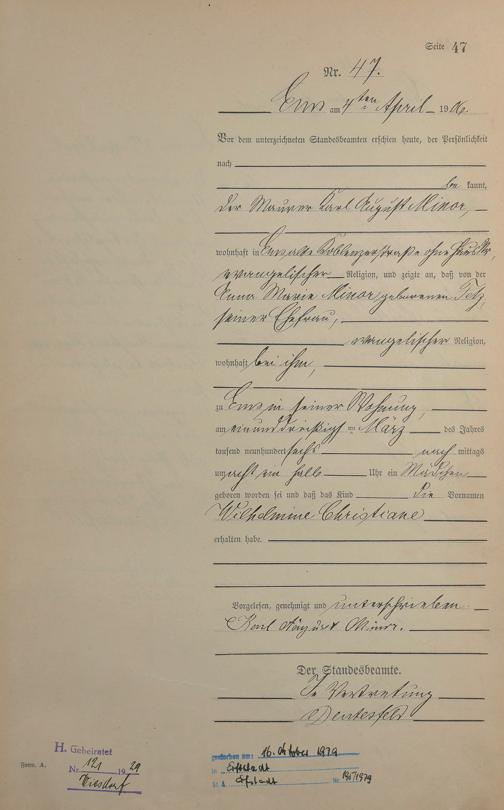 Seite 47
Nr. 47.
Ems am 4ten April 1906.
Vor dem unterzeichneten Standesbeamten erschien heute, der Persönlichkeit
nach
be kannt,
der Maurer Karl August Minor,
wohnhaft in Ems alte Koblenzerstraße ohne Haus Nr,
evangelischer Religion, und zeigte an, daß von der
Anna Marie Minor geborenen
seiner Ehefrau,
evangelischer Religion,
wohnhaft bei ihm,
zu Ems in seiner Wohnung,
am einunddreißigsten März des Jahres
tausend neunhundert sechs nach mittags
um acht ein halb Uhr ein Mädchen
geboren worden sei und daß das Kind die Vornamen
Wilhelmine Christiane
erhalten habe.
Vorgelesen, genehmigt und unterschrieben
Karl August Minor.
Der Standesbeamte.
In Vertretung
H. Geheiratet
Nr. 121 1929
Form. A.
gestorben am: 16. Oktober 1979
in Erftstadt
St. A. Erftstadt Nr.